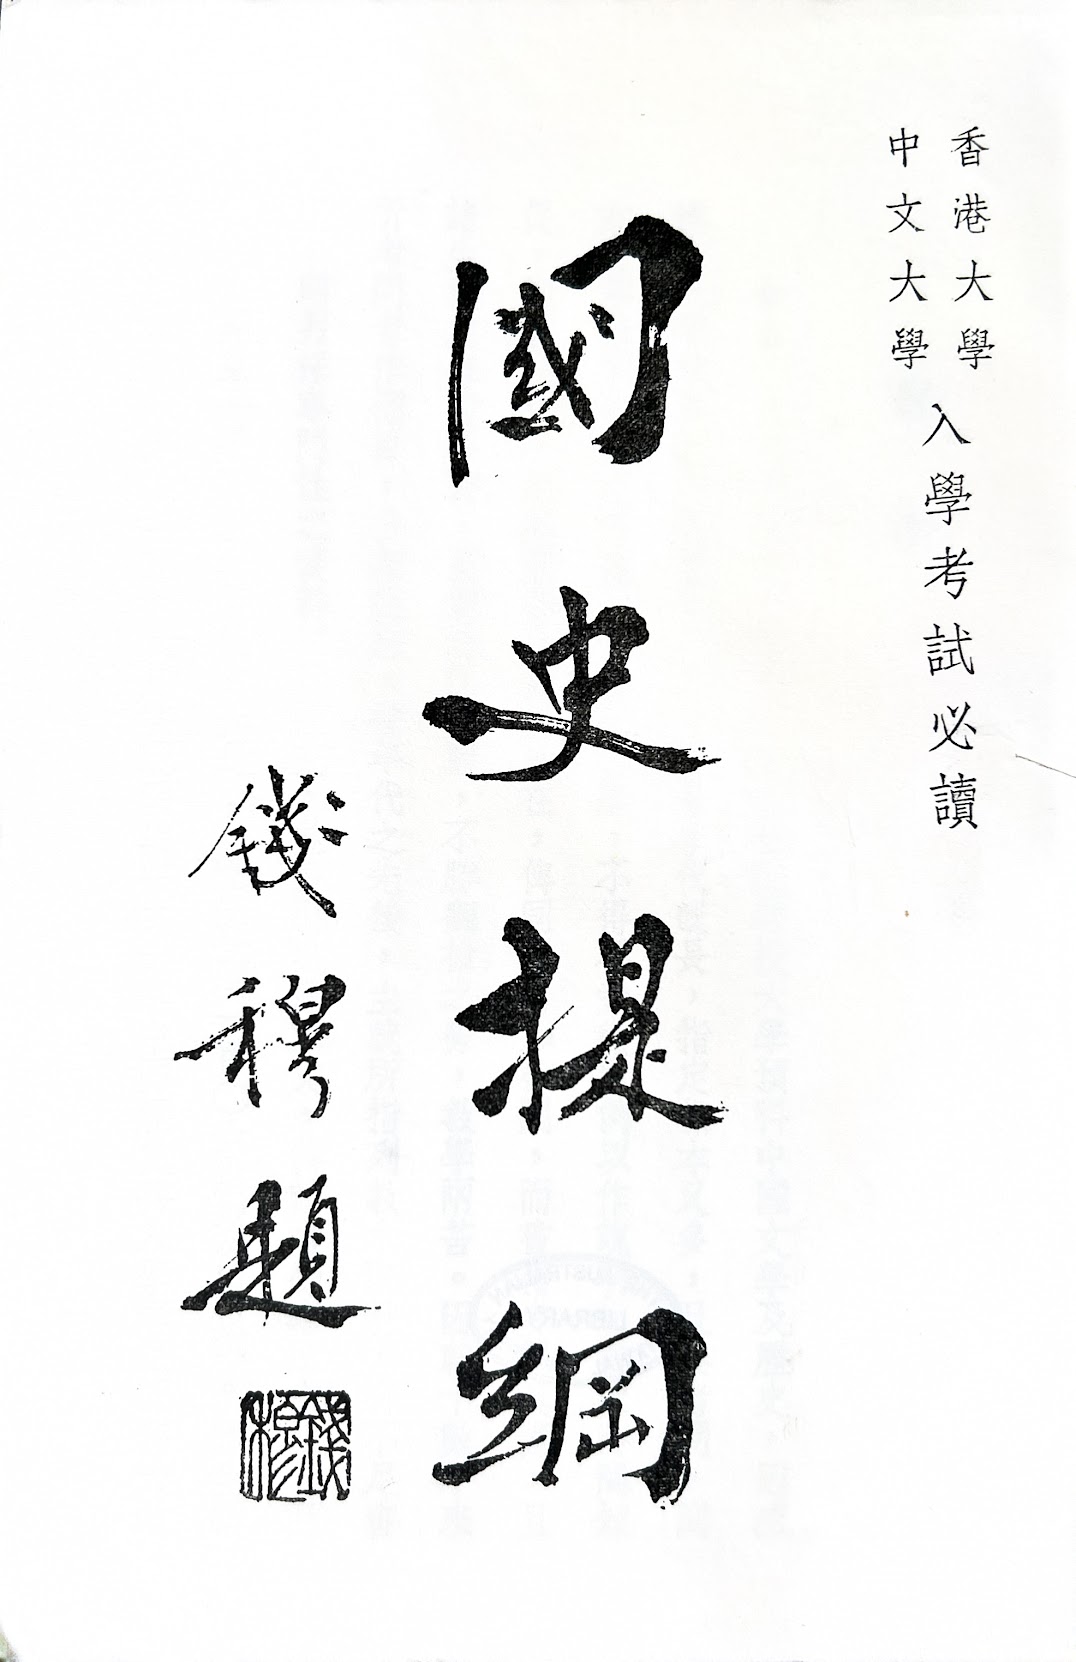 香港大學
中文大學
入學考試必讀
國史提綱
錢穆題
錢穆